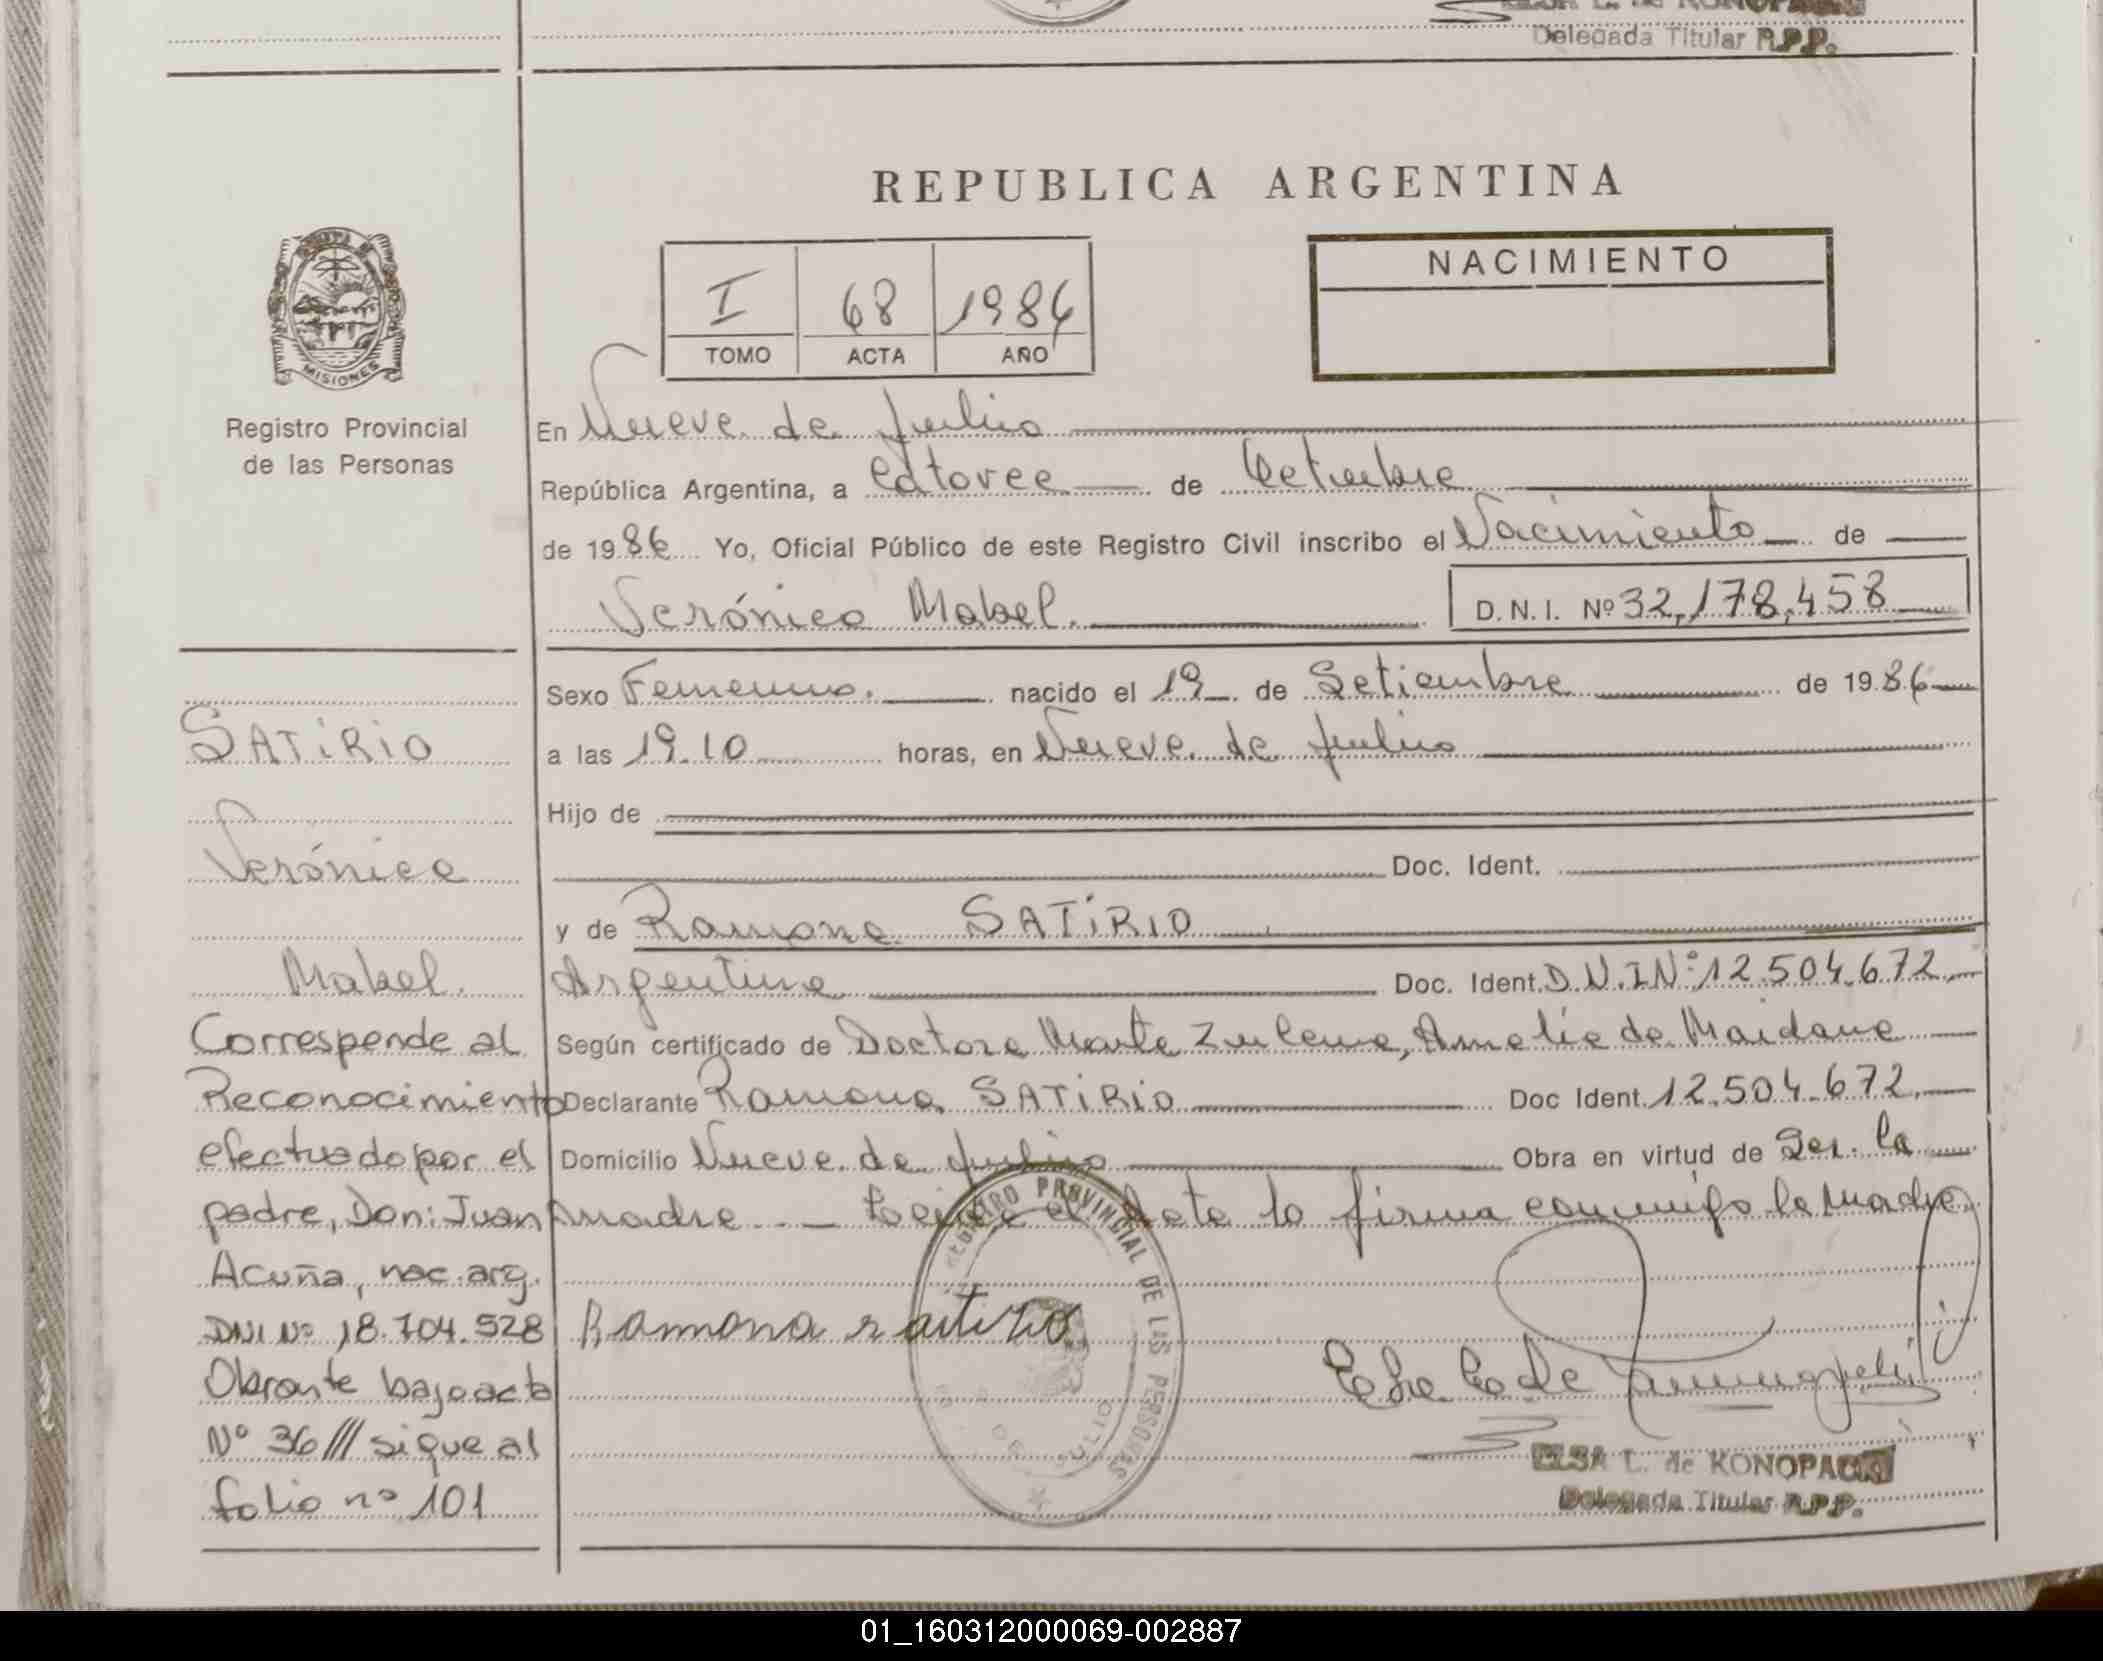 Delegada Titular R.P.P.
REPUBLICA ARGENTINA
NACIMIENTO
I 68 1986
TOMO ACTA AÑO
MISIONES
Registro Provincial
de las Personas
En Nueve de Julio
República Argentina, a Catorce de Octubre
de 1986 Yo, Oficial Público de este Registro Civil inscribo el Nacimiento de
Verónica Mabel. D.N.I. Nº 32,178,458
Sexo Femenino. nacido el 19 de Setiembre de 1986
a las 19.10 horas, en Nueve de Julio
Hijo de
Doc. Ident.
y de Ramona SATIRIO
Argentina Doc. Ident. D.N.I Nº 12.504.672
Según certificado de Doctora Marta Zulema, Amelia de Maidana
Declarante Ramona SATIRIO Doc Ident. 12.504.672.
Domicilio Nueve de Julio Obra en virtud de Ser. la
madre Acta la firma conmigo la madre
Ramona satirio
REGISTRO PROVINCIAL DE LAS PERSONAS
DE JULIO
ELSA L. de KONOPACKI
Delegada Titular R.P.P.
SATIRIO
Verónica
Mabel.
Corresponde al
Reconocimiento
efectuado por el
padre, Don: Juan
Acuña, nac. arg.
DNI Nº 18.704.528
Obrante bajo acta
Nº 36/// sigue al
folio nº 101
01_160312000069-002887